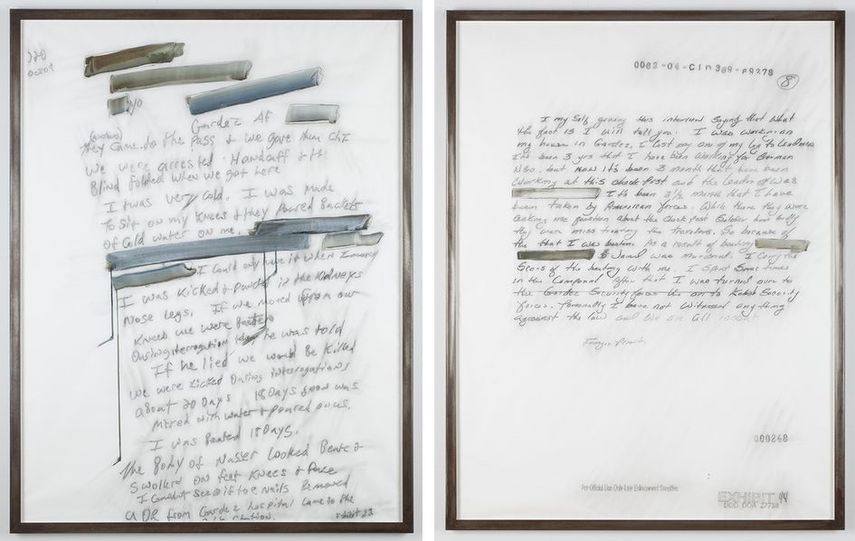 Gardez AF
they came to the Pass & we gave them chi
we were arrested. Handcuff & the
Blind folded when we got here
It was very cold. I was made
To sit on my Knees & they Poured Buckets
of cold water on me.
I could only have it when I
I was kicked & punched in the Kidneys
Nose legs, If we moved from our
Knees we were Beaten
During interrogation he was told
If he lied we would be Killed
we were kicked During interrogations
about 20 Days 18 Days snow was
Mixed with water & poured on us.
I was Beated 18 Days.
the Body of Nasser Looked Beated
Swollen on feet Knees & Face
I couldnt see if toe nails Removed
a DR from Gardez hospital came to the
Exhibit 23
0062-04-CID369-69278
8
I my self giving this interview saying that what
the fact is I will tell you. I was working on
my house in Gardez, I lost my one of my
It's been 3 yrs that I have been working for German
NGO. but now it's been 3 month that have been
working at this check post and the leader of was
It's been 3½ month that I have
been taken by American forces. While there they were
asking me question about the check post soldier how badly
they were miss treating the travelers. So because of
the that I was beaten. As a result of beating
& Jamal was murdered. I carry the
Scars of the beating with me. I spent some times
in the compound after that I was turned over to
the Gardez Security force the on to Kabul Security
force. Personally I have not witnessed any thing
against the law and we are all
000248
For Official Use Only-Law Enforcement Sensitive
EXHIBIT 44
DOD DOA 27728